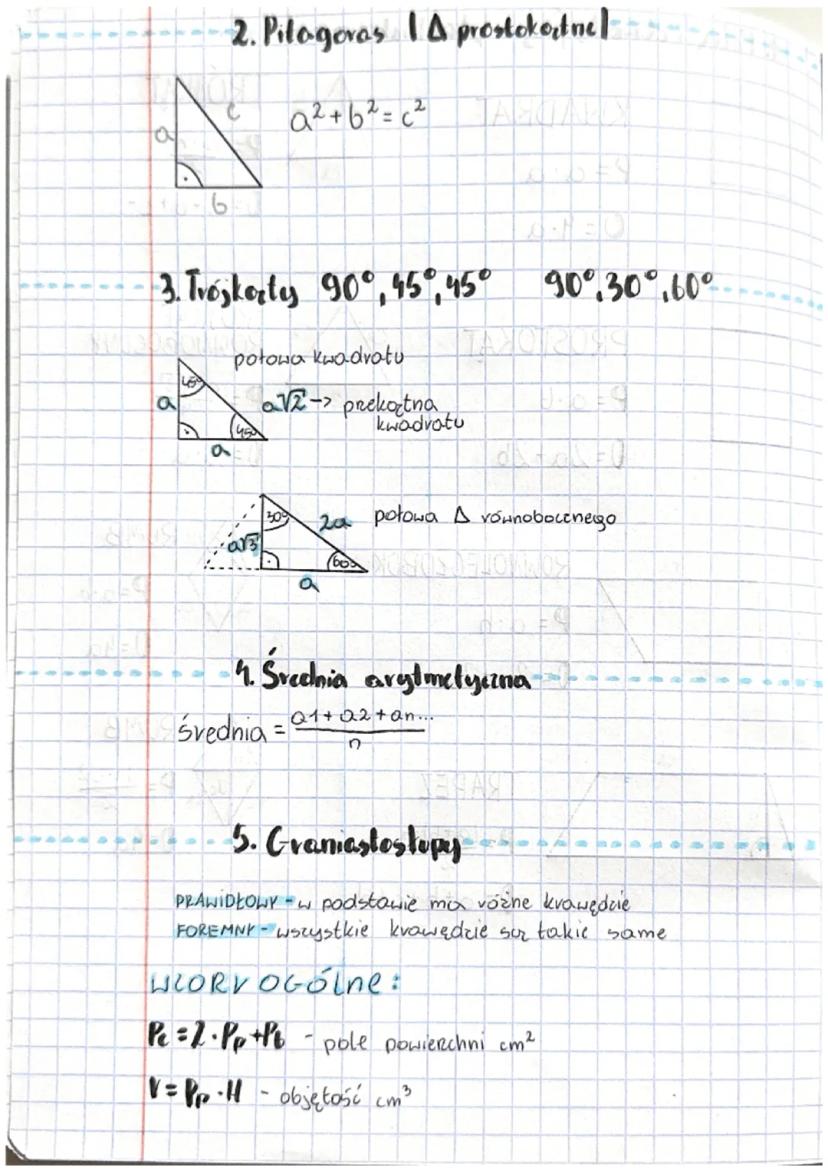 2. Pitagoras (Δ prostokątne)
c
a
a² + b² = c²
b
3. Trójkąty 90°, 45°, 45° 90°, 30°, 60°
połowa kwadratu
45°
a
a√2 -> prekątna
kwadratu
45°
a
30°
2a
połowa Δ równobocznego
a√3
60°
a
4. Średnia arytmetyczna
średnia = a1 + a2 + an... / n
5. Graniastosłupy
PRAWIDŁOWY - w podstawie ma różne krawędzie
FOREMNY - wszystkie krawędzie są takie same
WZORY OGÓLNE:
Pc = 2 · Pp + Pb - pole powierzchni cm²
V = Pp · H - objętość cm³